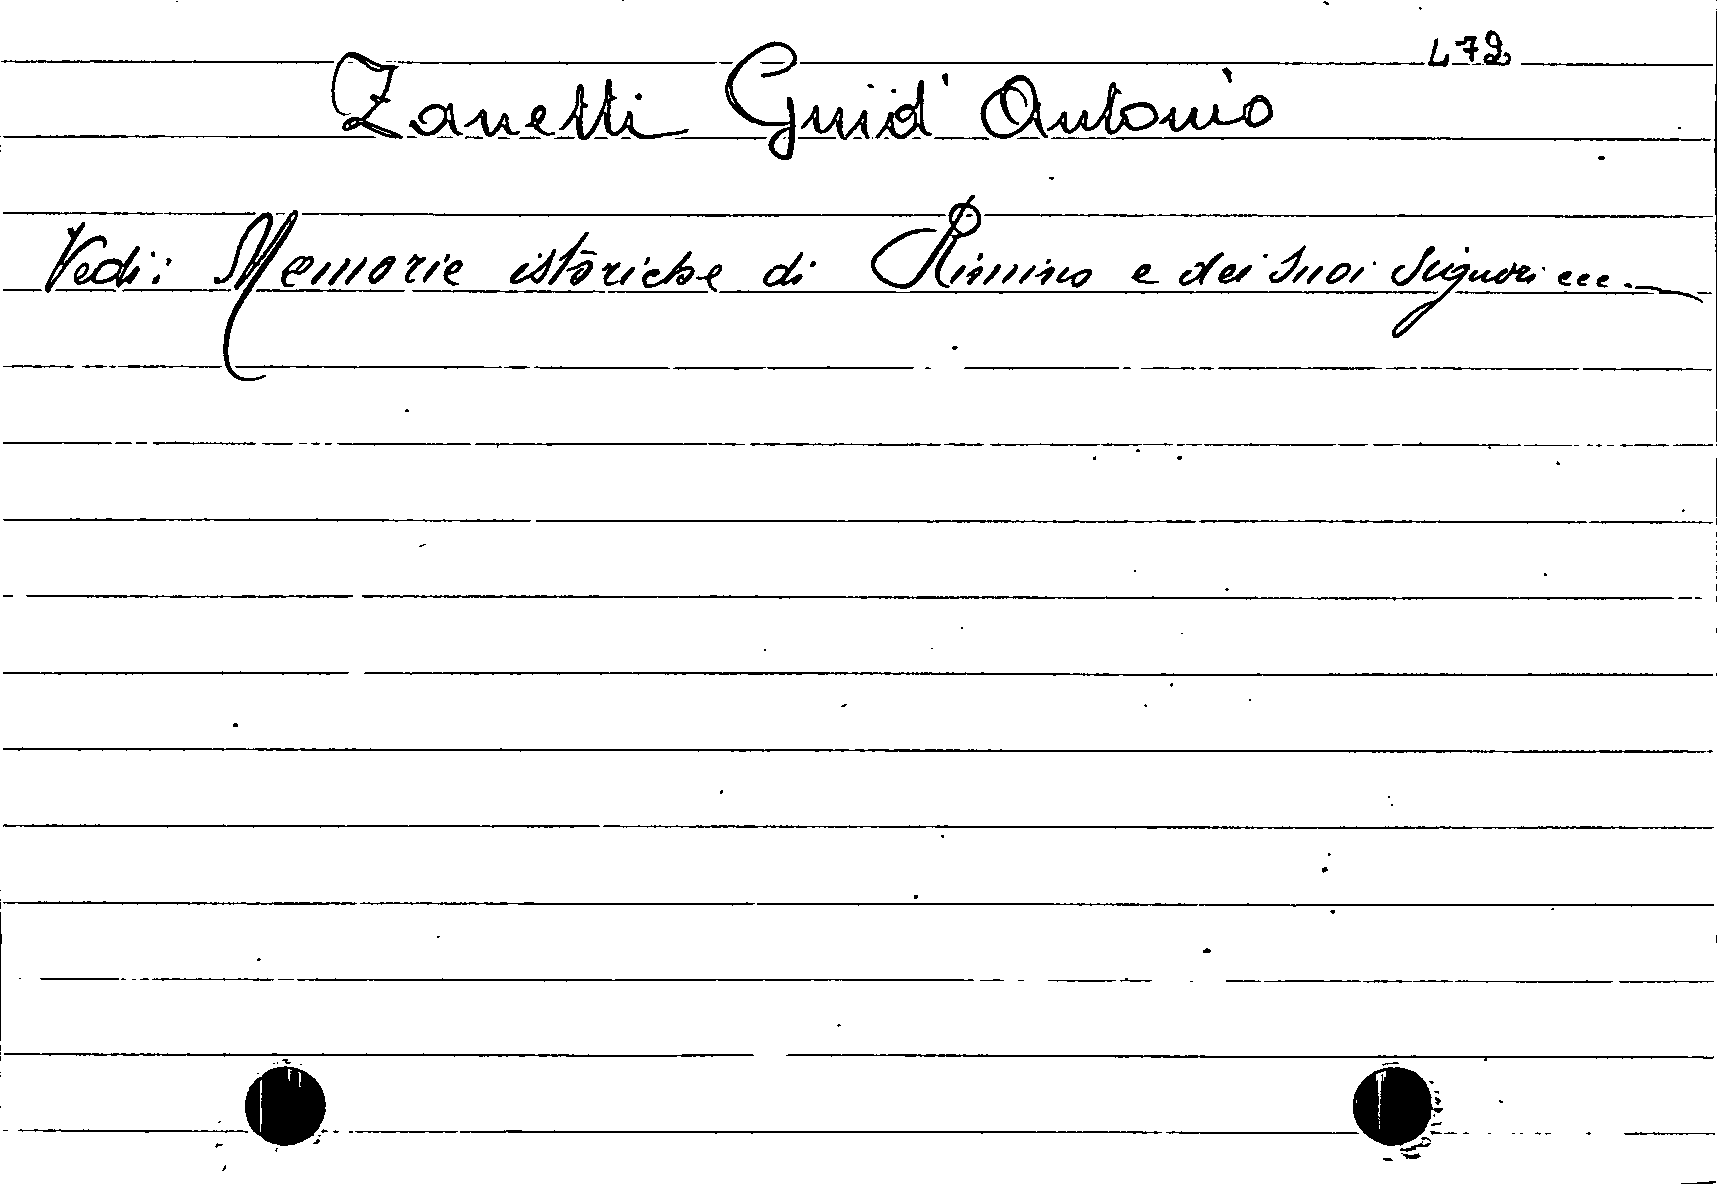 472
Zanetti Guid' Antonio
Vedi: Memorie istoriche di Rimino e dei suoi Signori ecc.